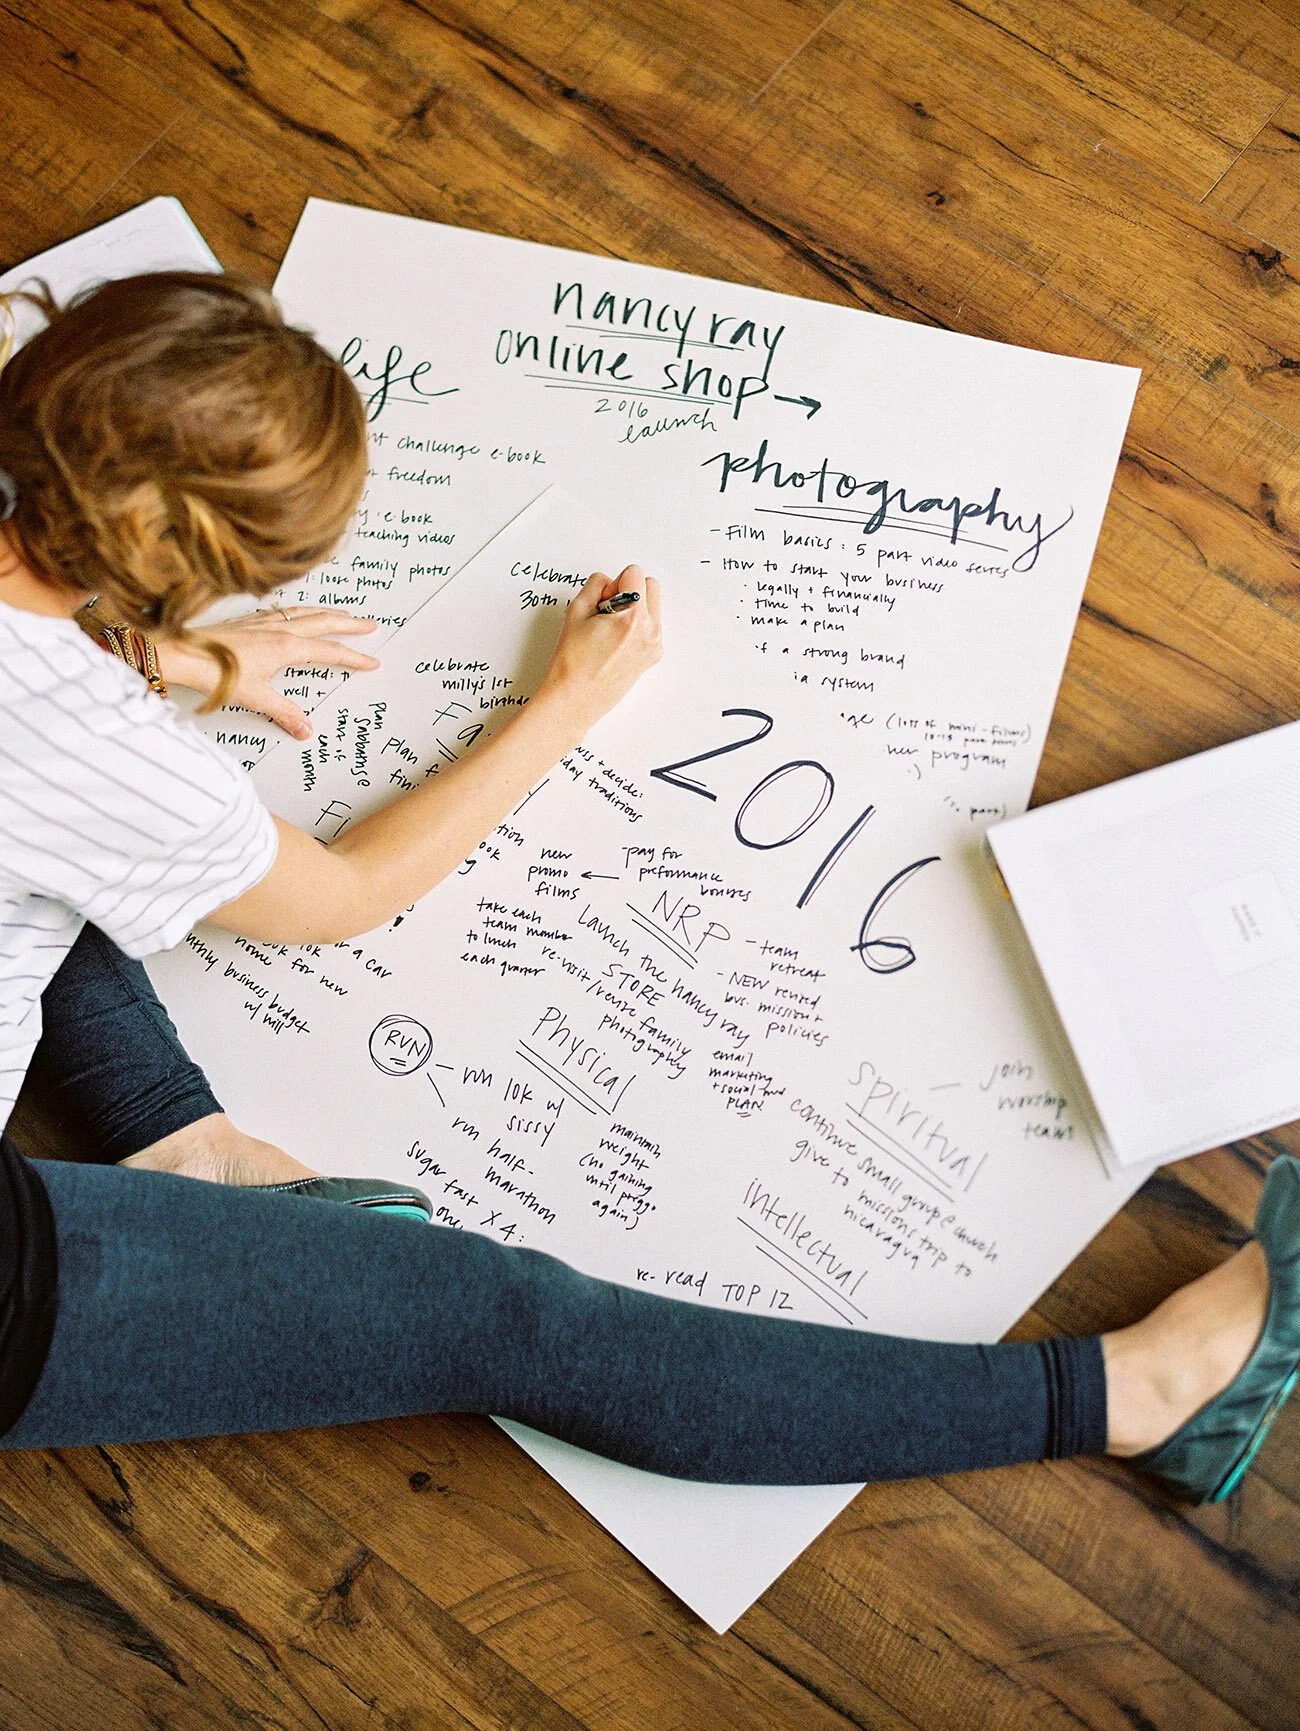 nancy ray
online shop →
2016
launch
life
challenge e-book
freedom
e-book
teaching videos
family photos
1: loose photos
2: albums
photography
- Film basics: 5 part video series
- How to start your business
· legally + financially
· time to build
· make a plan
a strong brand
a system
(lots of mini-films)
new program
celebrate
30th
celebrate
milly's 1st
started:
well +
nancy
Plan
Sabbath @
start if
each
month
plan
+ decide:
traditions
2016
new
promo
films
- pay for
preformance
bonuses
NRP
- team
retreat
- NEW
bus. mission +
policies
take each
team member
to lunch
each quarter
Launch the nancy ray
STORE
re-visit/revise family
photography
email
marketing
+ social
PLAN
for a car
home for new
business budget
w/ will
RUN
run 10K w/
sissy
run half-
marathon
sugar fast x 4:
Physical
maintain
weight
(no gaining
until preggo
again)
Spiritual
- join
worship
team
continue small group @ church
give to missions trip to
nicaragua
intellectual
re-read TOP 12